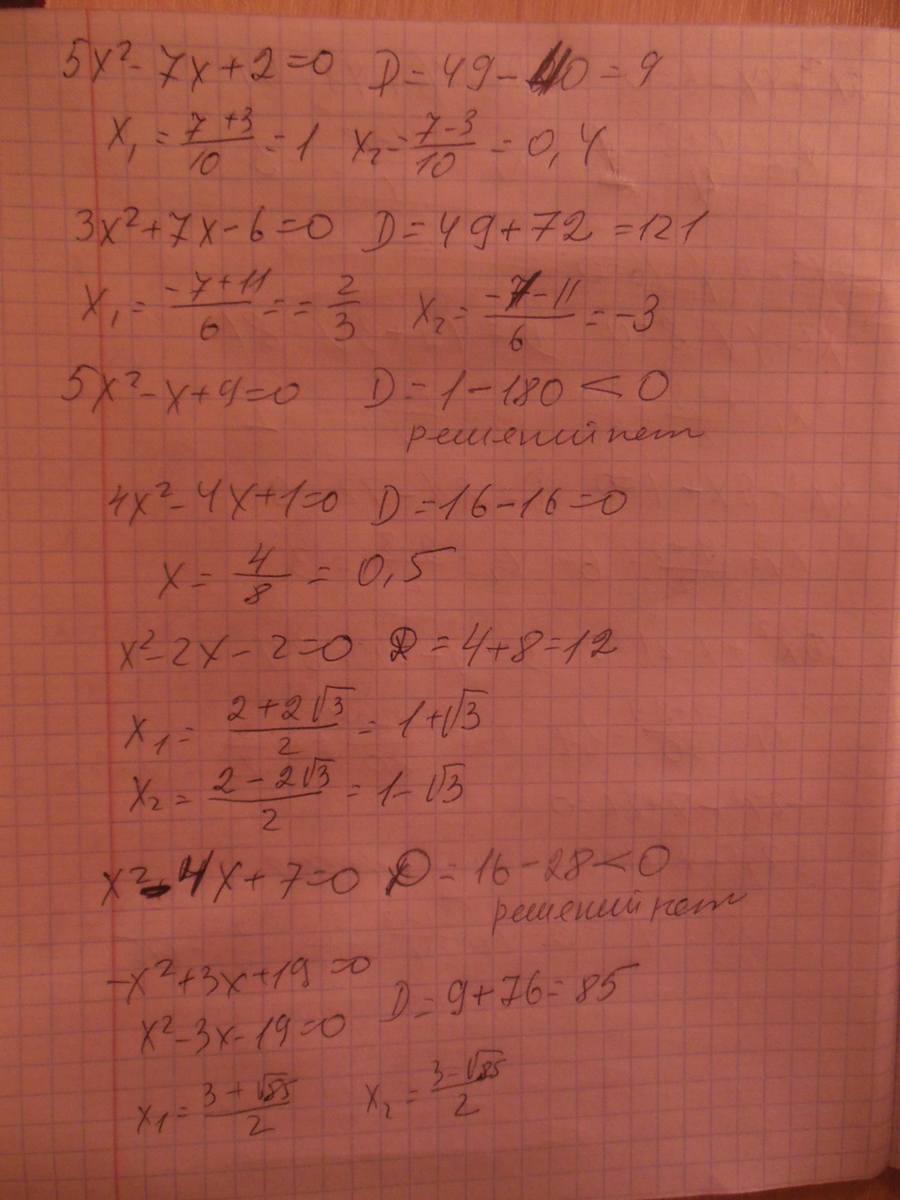 5x² - 7x + 2 = 0 D = 49 - 40 = 9
x₁ = (7 + 3)/10 = 1 x₂ = (7 - 3)/10 = 0,4
3x² + 7x - 6 = 0 D = 49 + 72 = 121
x₁ = (-7 + 11)/6 = = 2/3 x₂ = (-7 - 11)/6 = -3
5x² - x + 9 = 0 D = 1 - 180 < 0
решений нет
4x² - 4x + 1 = 0 D = 16 - 16 = 0
x = 4/8 = 0,5
x² - 2x - 2 = 0 D = 4 + 8 = 12
x₁ = (2 + 2√3)/2 = 1 + √3
x₂ = (2 - 2√3)/2 = 1 - √3
x² - 4x + 7 = 0 D = 16 - 28 < 0
решений нет
-x² + 3x + 19 = 0
x² - 3x - 19 = 0 D = 9 + 76 = 85
x₁ = (3 + √85)/2 x₂ = (3 - √85)/2